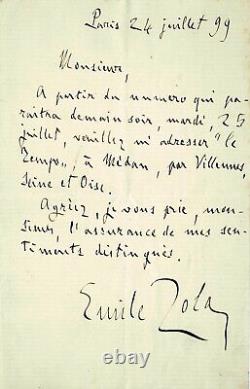 Paris 24 juillet 99
Monsieur,
A partir du numero qui pa-
raitra demain soir, mardi, 25
juillet, veuillez m'adresser "le
Temps", à Médan, par Villennes,
Seine et Oise.
Agréez, je vous prie, mon-
sieur, l'assurance de mes sen-
timents distingués.
Emile Zola
ebay